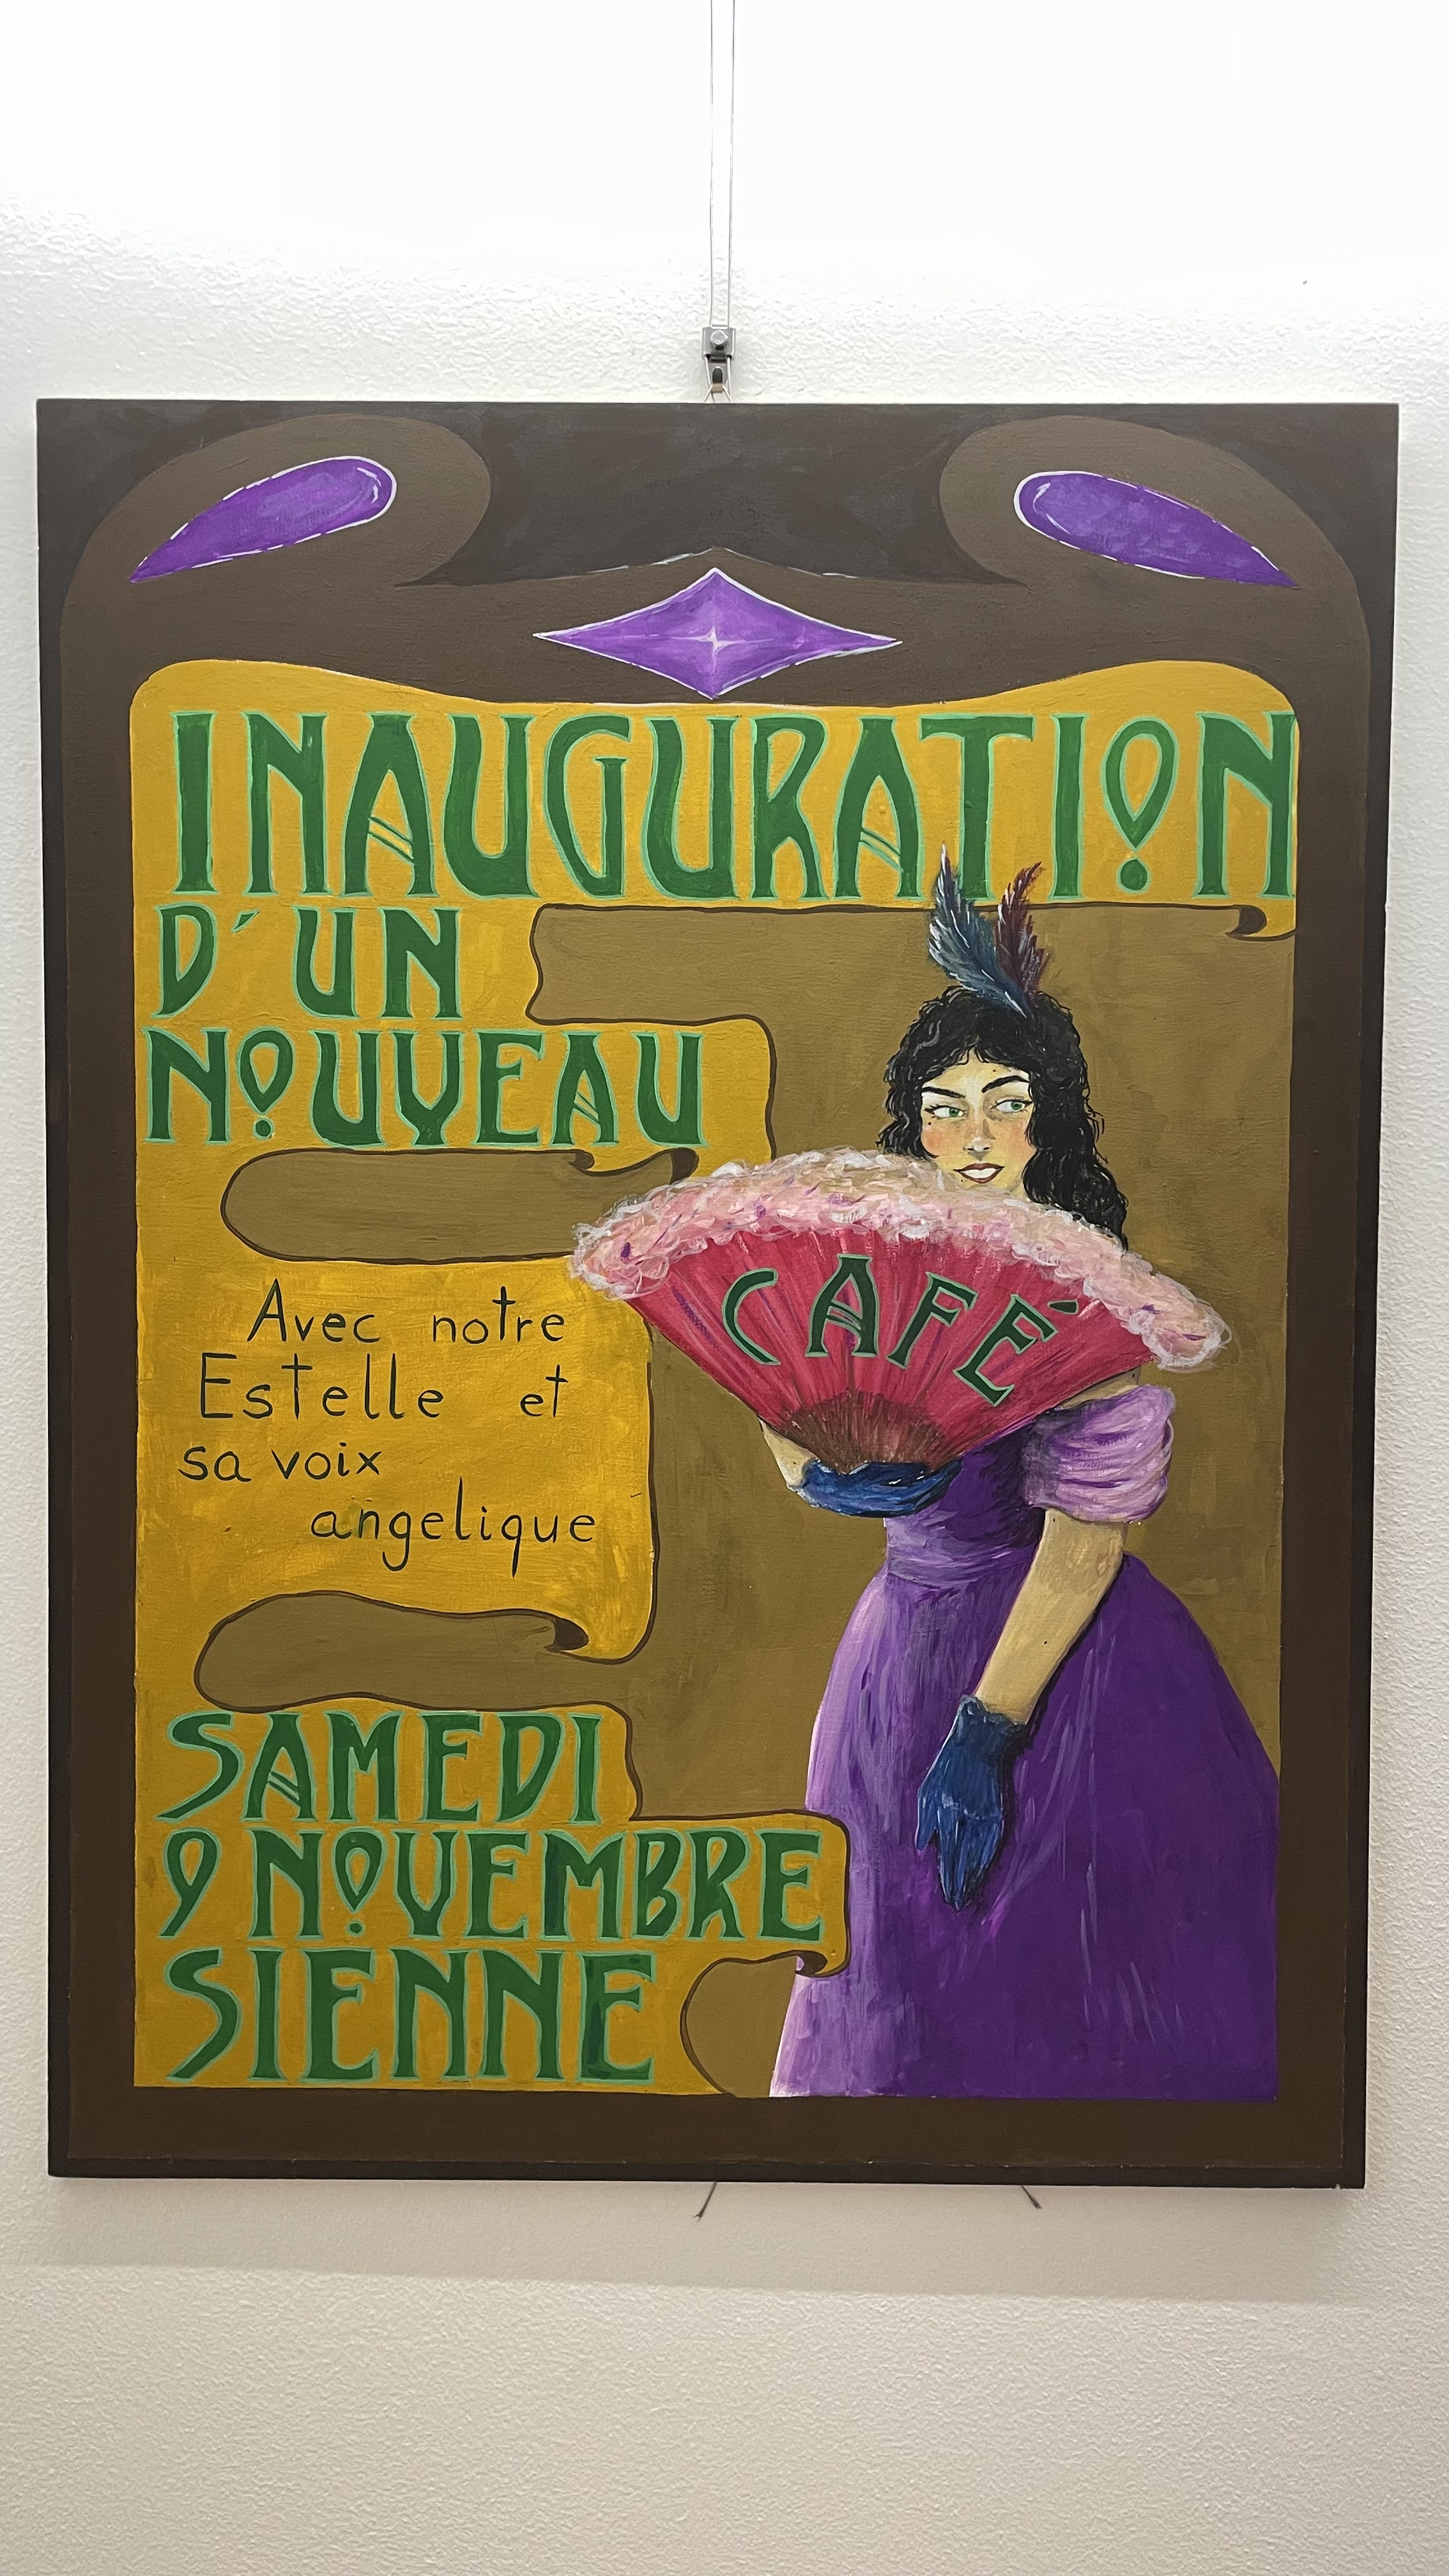 INAUGURATION
D´UN
NOUVEAU
CAFÉ
Avec notre
Estelle et
sa voix
angelique
SAMEDI
9 NOVEMBRE
SIENNE